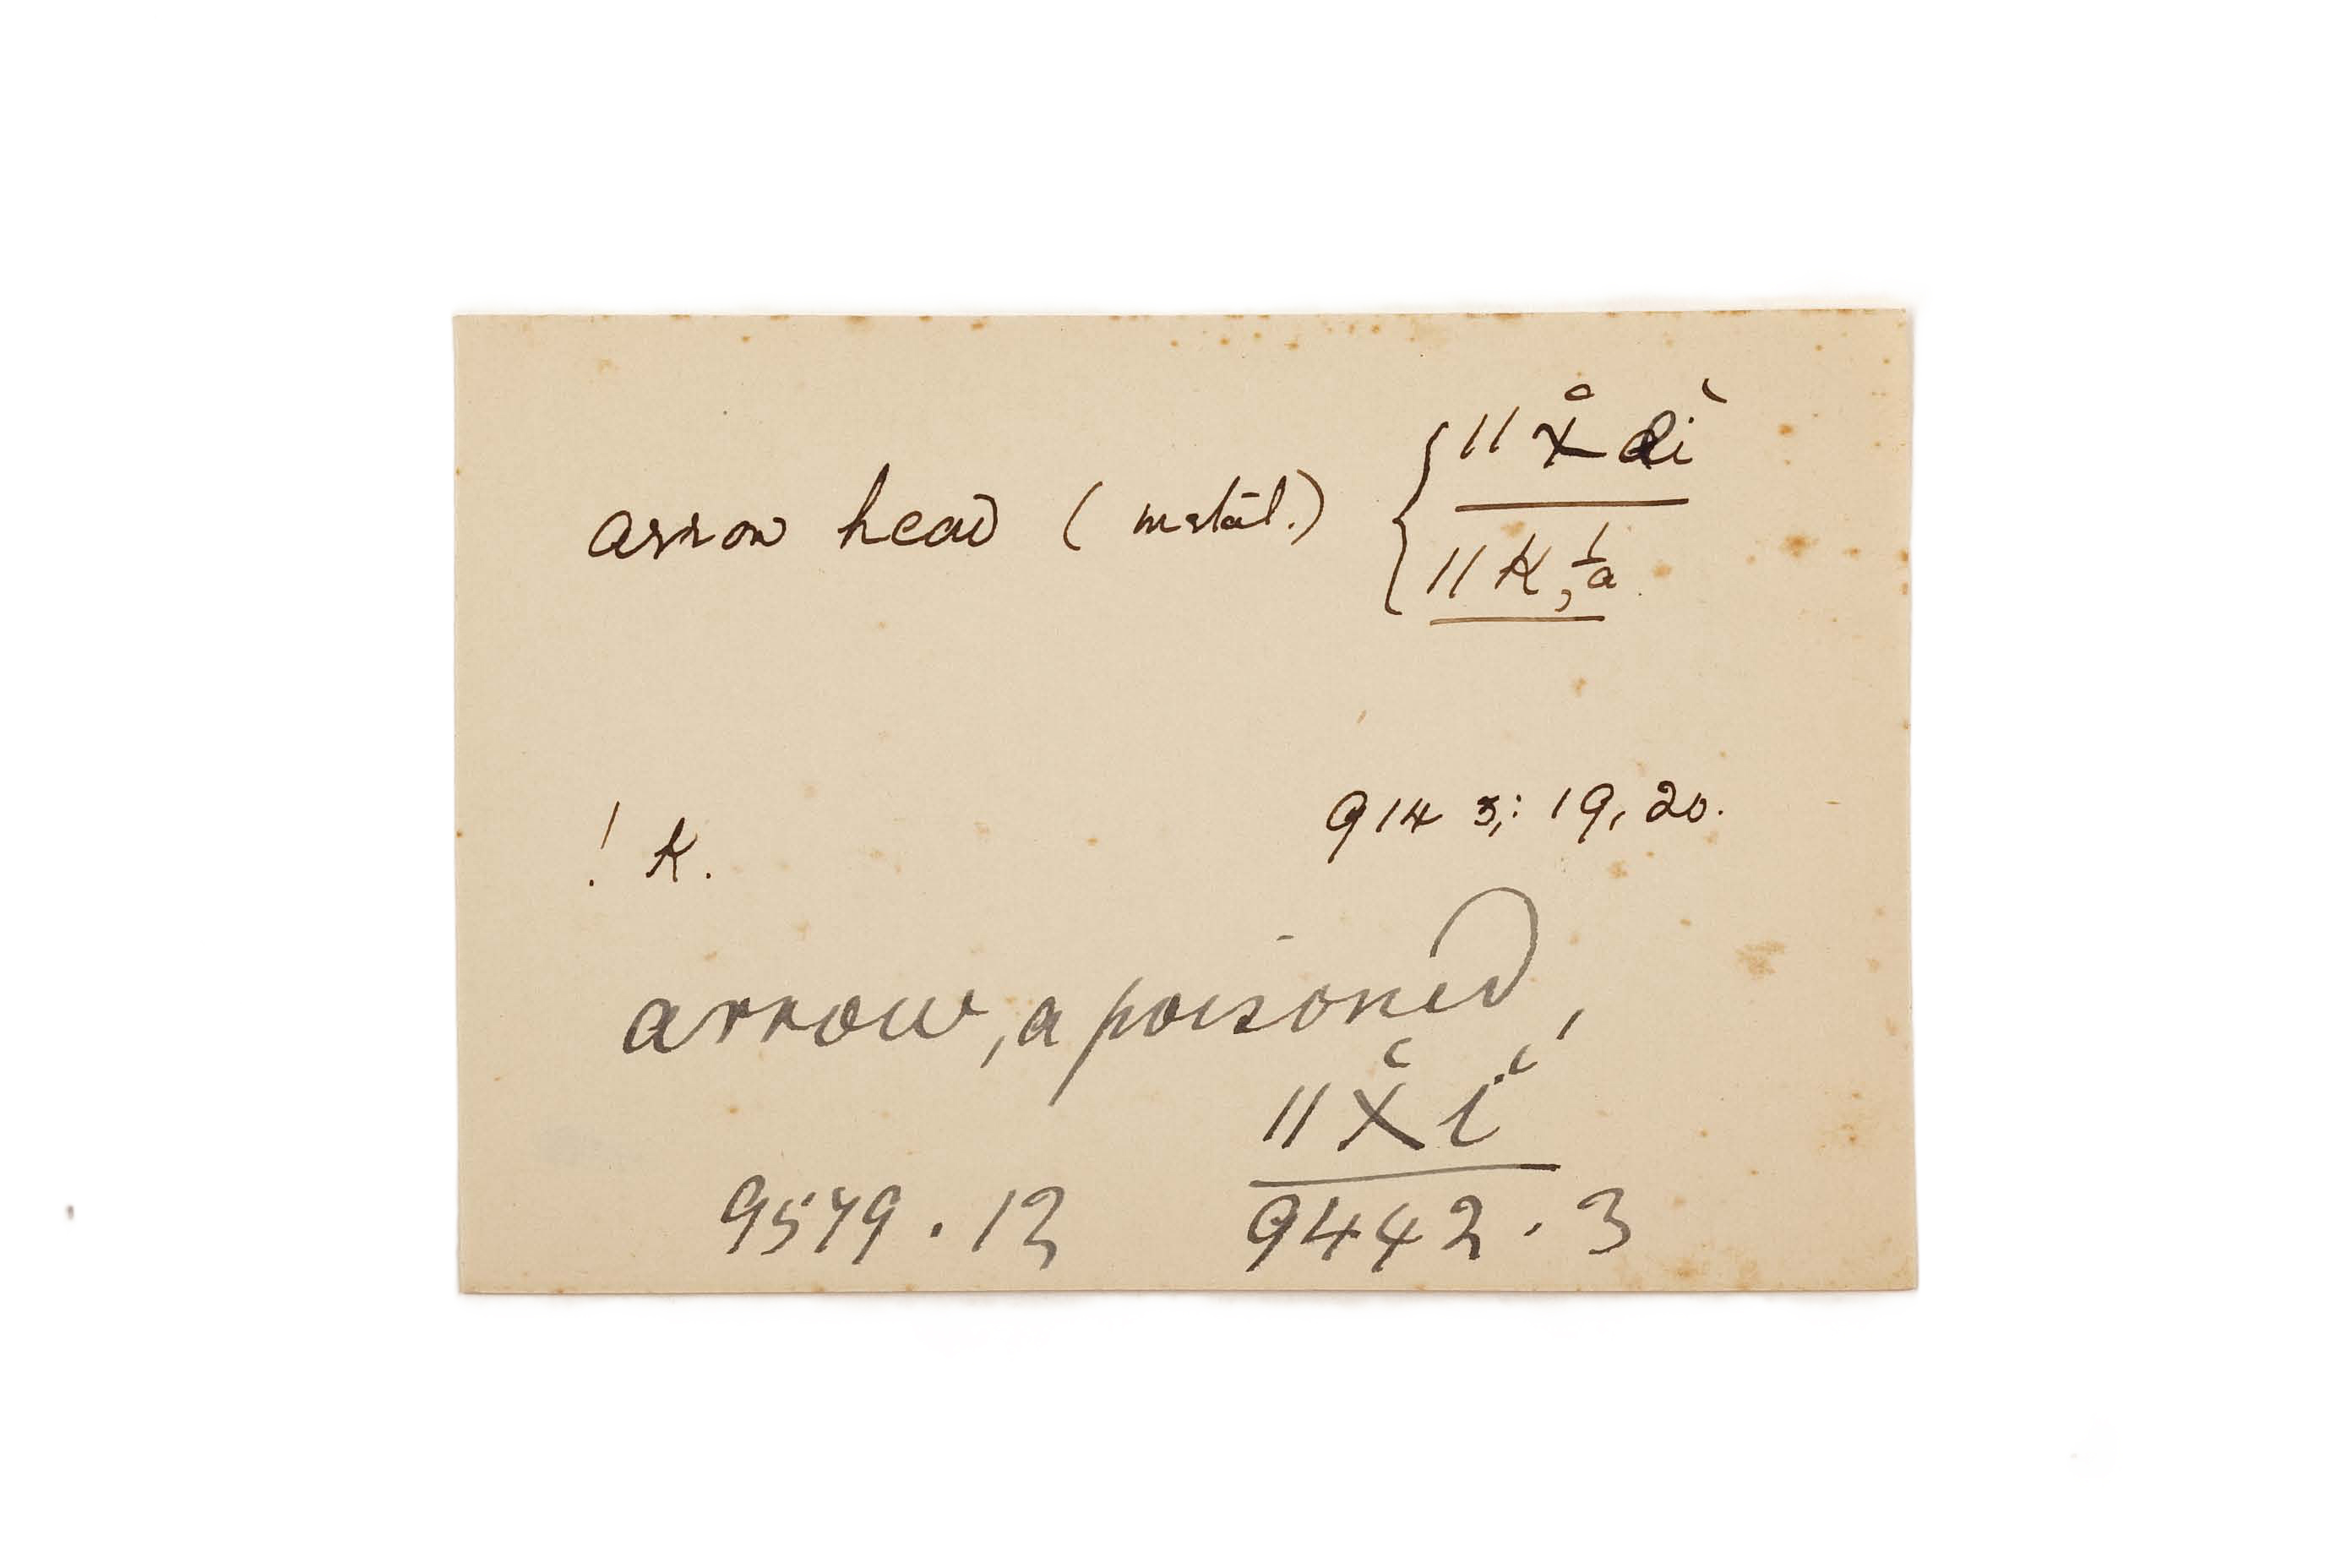 arrow head (metal.) { ǁx̆ ai̔
ǁk,á̵
! k. 9143,: 19, 20.
arrow, a poisoned,
ǁx̆ĭ
9579.12 9442.3